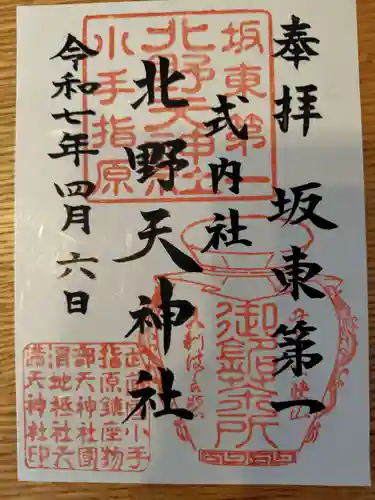 奉拝
坂東第一
式内社
北野天神社
令和七年四月六日
坂東第一
北野天神社
小手指原
武蔵小手
指原鎮座物
部天神社國
渭地祇社天
満天神社印